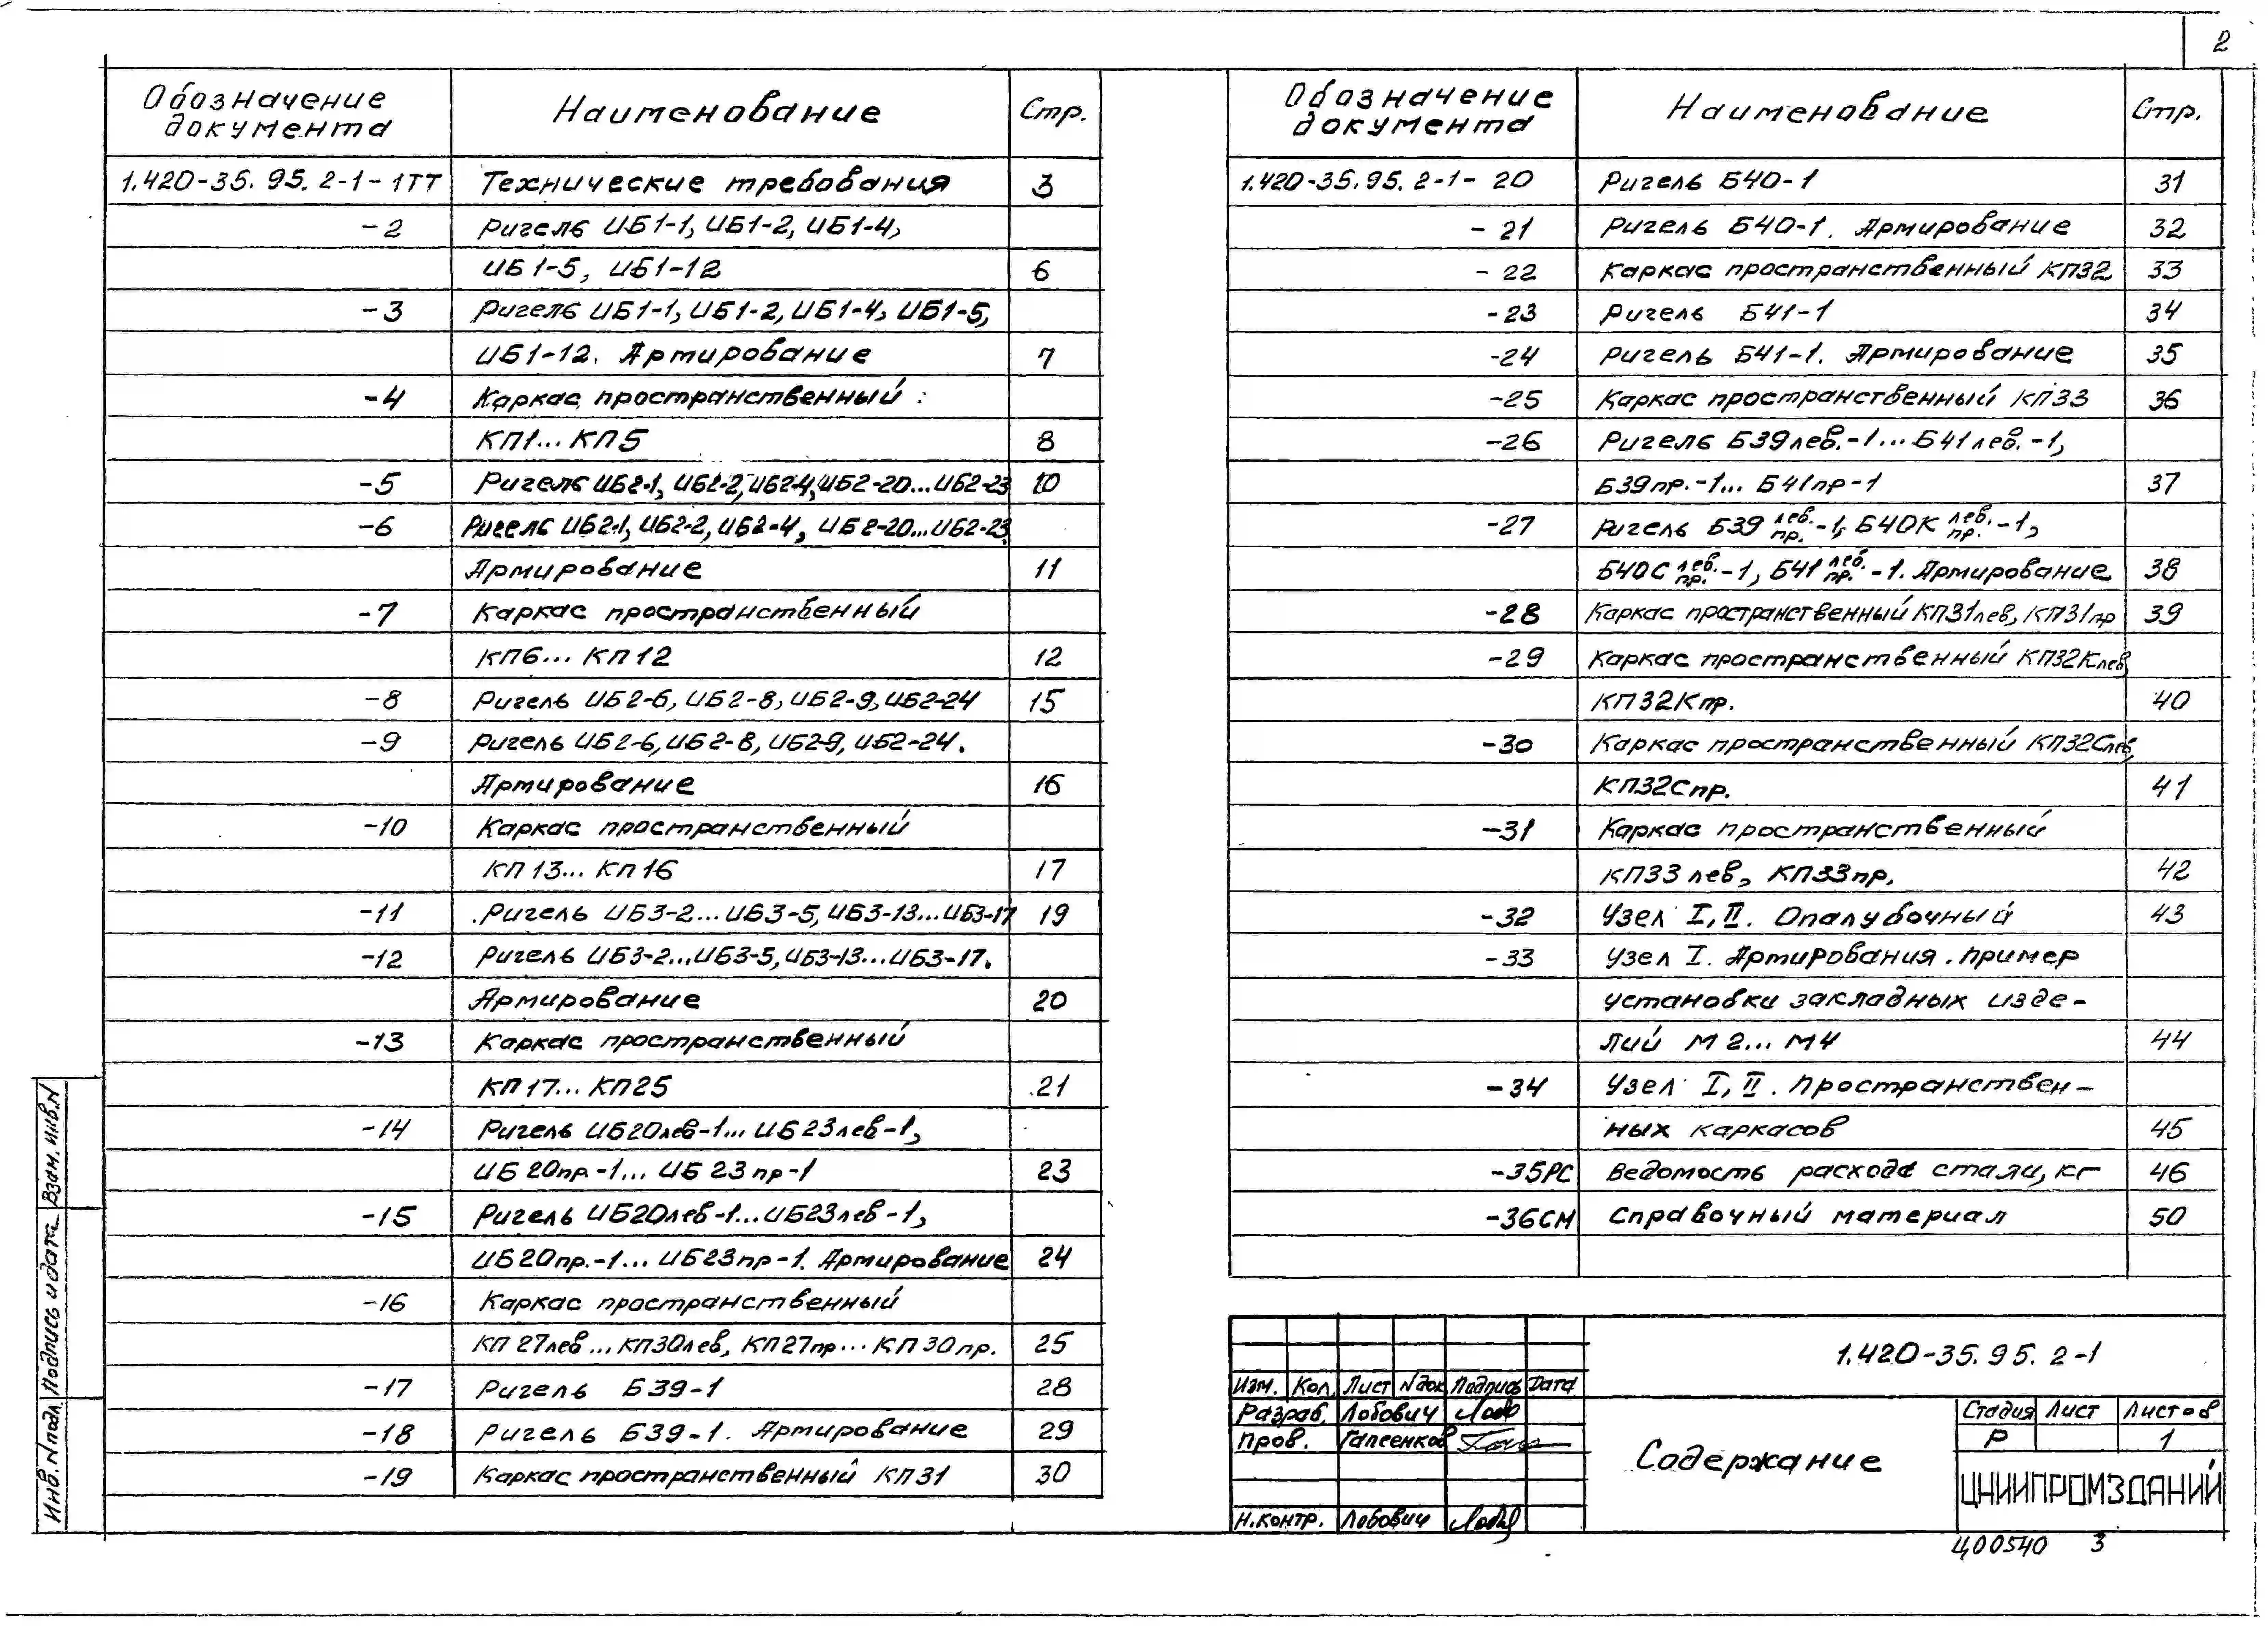 2
Обозначение документа Наименование Стр.
1.420-35.95.2-1-1ТТ Технические требования 3
-2 Ригель ИБ1-1, ИБ1-2, ИБ1-4,
ИБ1-5, ИБ1-12 6
-3 Ригель ИБ1-1, ИБ1-2, ИБ1-4, ИБ1-5,
ИБ1-12. Армирование 7
-4 Каркас пространственный
КП1...КП5 8
-5 Ригель ИБ2-1, ИБ2-2, ИБ2-4, ИБ2-20...ИБ2-23 10
-6 Ригель ИБ2-1, ИБ2-2, ИБ2-4, ИБ2-20...ИБ2-23
Армирование 11
-7 Каркас пространственный
КП6...КП12 12
-8 Ригель ИБ2-6, ИБ2-8, ИБ2-9, ИБ2-24 15
-9 Ригель ИБ2-6, ИБ2-8, ИБ2-9, ИБ2-24.
Армирование 16
-10 Каркас пространственный
КП13...КП16 17
-11 Ригель ИБ3-2...ИБ3-5, ИБ3-13...ИБ3-17 19
-12 Ригель ИБ3-2...ИБ3-5, ИБ3-13...ИБ3-17.
Армирование 20
-13 Каркас пространственный
КП17...КП25 21
-14 Ригель ИБ20лев-1...ИБ23лев-1,
ИБ20пр-1...ИБ23пр-1 23
-15 Ригель ИБ20лев-1...ИБ23лев-1,
ИБ20пр.-1...ИБ23пр-1. Армирование 24
-16 Каркас пространственный
КП27лев...КП30лев, КП27пр...КП30пр. 25
-17 Ригель Б39-1 28
-18 Ригель Б39-1. Армирование 29
-19 Каркас пространственный КП31 30
Обозначение документа Наименование Стр.
1.420-35.95.2-1-20 Ригель Б40-1 31
-21 Ригель Б40-1. Армирование 32
-22 Каркас пространственный КП32 33
-23 Ригель Б41-1 34
-24 Ригель Б41-1. Армирование 35
-25 Каркас пространственный КП33 36
-26 Ригель Б39лев.-1...Б41лев.-1,
Б39пр.-1...Б41пр-1 37
-27 Ригель Б39 лев. пр.-1, Б40К лев. пр.-1,
Б40С лев. пр.-1, Б41 лев. пр.-1. Армирование 38
-28 Каркас пространственный КП31лев, КП31пр 39
-29 Каркас пространственный КП32Клев,
КП32Кпр. 40
-30 Каркас пространственный КП32Слев,
КП32Спр. 41
-31 Каркас пространственный
КП33лев, КП33пр. 42
-32 Узел I, II. Опалубочный 43
-33 Узел I. Армирования. Пример
установки закладных изде-
лий М2...М4 44
-34 Узел I, II. Пространствен-
ных каркасов 45
-35РС Ведомость расхода стали, кг 46
-36СМ Справочный материал 50
Взам. инв.N
Подпись и дата
Инв. N подл.
1.420-35.95.2-1
Изм. Кол. Лист Nдок Подпись Дата
Разраб. Лобович
Пров. Гапеенков
Н.контр. Лобович
Содержание
Стадия Лист Листов
Р 1
ЦНИИПРОМЗДАНИЙ
Ц00540 3